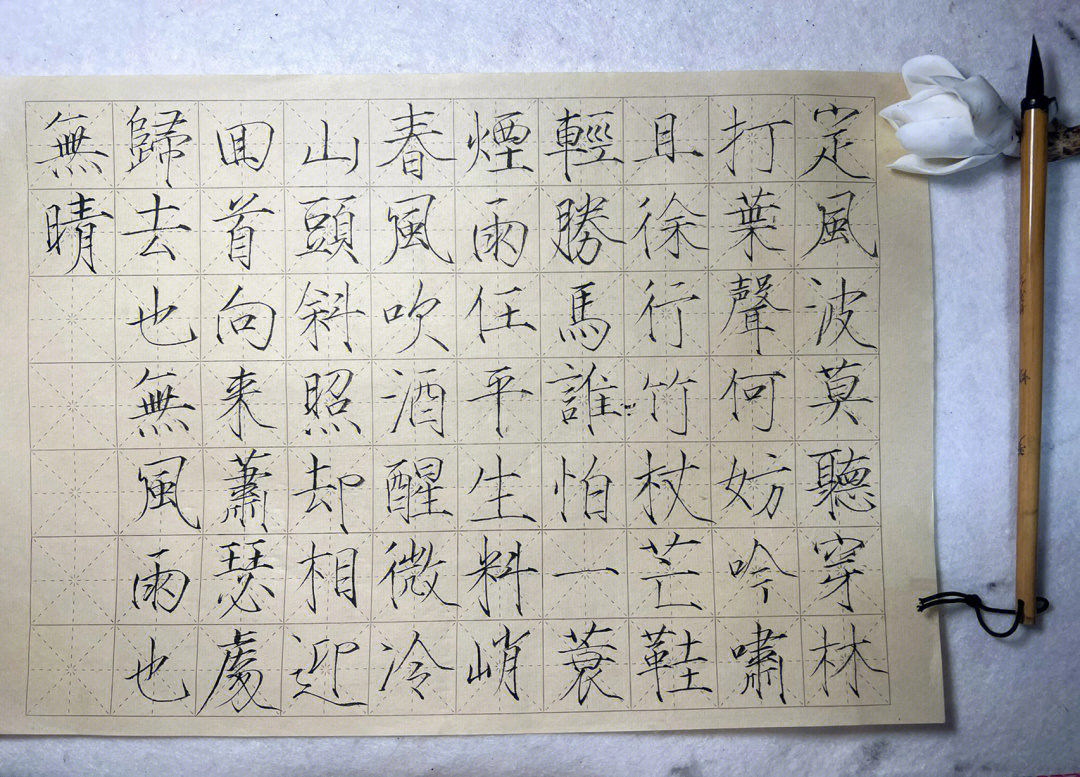 定風波莫聽穿林
打葉聲何妨吟嘯
且徐行竹杖芒鞋
輕勝馬誰怕一蓑
煙雨任平生料峭
春風吹酒醒微冷
山頭斜照却相迎
回首向来蕭瑟處
歸去也無風雨也
無晴